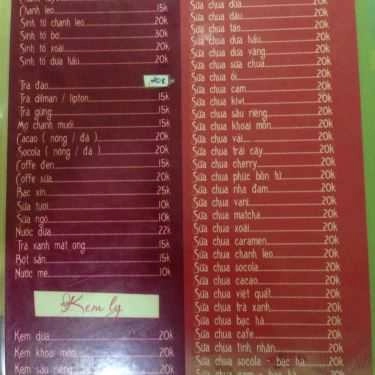 Chanh leo 15k
Sinh tố chanh leo 20k
Sinh tố bơ 30k
Sinh tố xoài 20k
Sinh tố dưa hấu 20k
Trà đào 20k
Trà dilman / lipton 15k
Trà gừng 15k
Mơ chanh muối 15k
Cacao ( nóng / đá ) 20k
Socola ( nóng / đá ) 20k
Coffe đen 15k
Coffe sữa 20k
Bạc xỉn 25k
Sữa tươi 10k
Sữa ngô 10k
Nước dừa 22k
Trà xanh mật ong 15k
Bột sắn 15k
Nước me 10k
Kem ly
Kem dừa 20k
Kem khoai môn 20k
Kem sầu riêng
Sữa chua dứa 20k
Sữa chua dâu 20k
Sữa chua táo 20k
Sữa chua dưa hấu 20k
Sữa chua dưa vàng 20k
Sữa chua sữa chua 20k
Sữa chua ổi 20k
Sữa chua cam 20k
Sữa chua kiwi 20k
Sữa chua sầu riêng 20k
Sữa chua khoai môn 20k
Sữa chua vải 20k
Sữa chua trái cây 20k
Sữa chua cherry 20k
Sữa chua phúc bồn tử 20k
Sữa chua nha đam 20k
Sữa chua vani 20k
Sữa chua matcha 20k
Sữa chua xoài 20k
Sữa chua caramen 20k
Sữa chua chanh leo 20k
Sữa chua socola 20k
Sữa chua cacao 20k
Sữa chua việt quất 20k
Sữa chua trà xanh 20k
Sữa chua bạc hà 20k
Sữa chua cafe 20k
Sữa chua tình nhân 20k
Sữa chua socola - bạc hà 20k